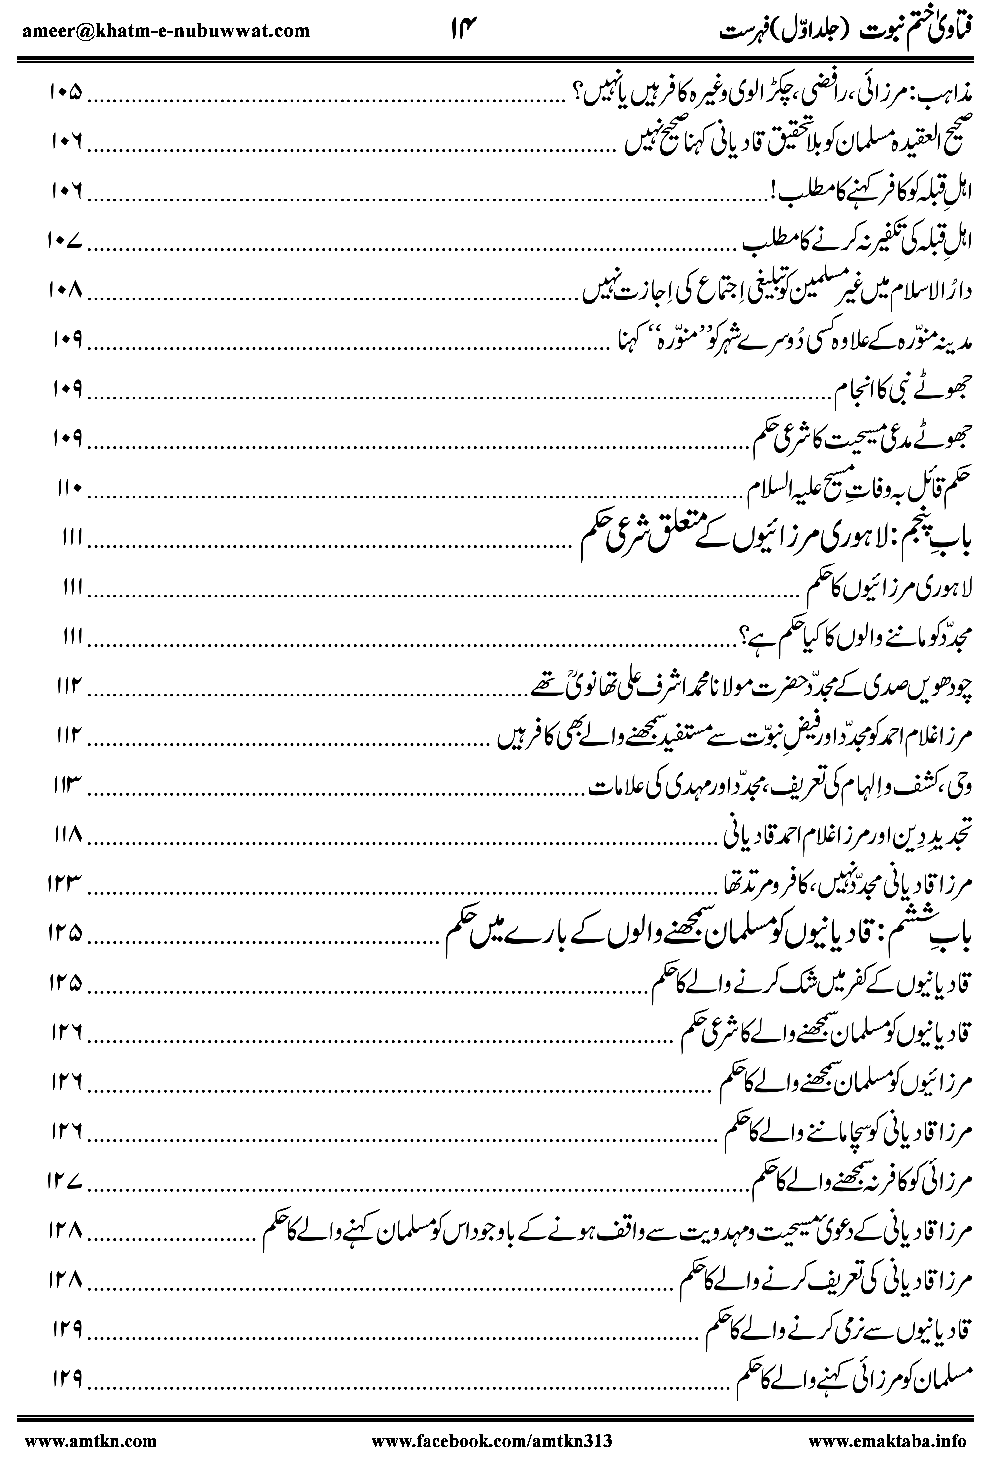 فتاویٰ ختم نبوت (جلد اوّل) فہرست ۱۴ ameer@khatm-e-nubuwwat.com
مذاہب: مرزائی، رافضی، چکڑالوی وغیرہ کافر ہیں یا نہیں؟ ۱۰۵
صحیح العقیدہ مسلمان کو بلاتحقیق قادیانی کہنا صحیح نہیں ۱۰۶
اہلِ قبلہ کو کافر کہنے کا مطلب! ۱۰۶
اہلِ قبلہ کی تکفیر نہ کرنے کا مطلب ۱۰۷
دارُ الاسلام میں غیر مسلمین کو تبلیغی اِجتماع کی اِجازت نہیں ۱۰۸
مدینہ منوّرہ کے علاوہ کسی دُوسرے شہر کو ’’منوّرہ‘‘ کہنا ۱۰۹
جھوٹے نبی کا انجام ۱۰۹
جھوٹے مدعی مسیحیت کا شرعی حکم ۱۰۹
حکم قائل بہ وفاتِ مسیح علیہ السلام ۱۱۰
بابِ پنجم: لاہوری مرزائیوں کے متعلق شرعی حکم ۱۱۱
لاہوری مرزائیوں کا حکم ۱۱۱
مجدّد کو ماننے والوں کا کیا حکم ہے؟ ۱۱۱
چودھویں صدی کے مجدّد حضرت مولانا محمد اشرف علی تھانویؒ تھے ۱۱۲
مرزا غلام احمد کو مجدّد اور فیضِ نبوّت سے مستفید سمجھنے والے بھی کافر ہیں ۱۱۲
وحی، کشف و اِلہام کی تعریف، مجدّد اور مہدی کی علامات ۱۱۳
تجدیدِ دِین اور مرزا غلام احمد قادیانی ۱۱۸
مرزا قادیانی مجدّد نہیں، کافر و مرتد تھا ۱۲۳
بابِ ششم: قادیانیوں کو مسلمان سمجھنے والوں کے بارے میں حکم ۱۲۵
قادیانیوں کے کفر میں شک کرنے والے کا حکم ۱۲۵
قادیانیوں کو مسلمان سمجھنے والے کا شرعی حکم ۱۲۶
مرزائیوں کو مسلمان سمجھنے والے کا حکم ۱۲۶
مرزا قادیانی کو سچا ماننے والے کا حکم ۱۲۶
مرزائی کو کافر نہ سمجھنے والے کا حکم ۱۲۷
مرزا قادیانی کے دعویٔ مسیحیت و مہدویت سے واقف ہونے کے باوجود اس کو مسلمان کہنے والے کا حکم ۱۲۸
مرزا قادیانی کی تعریف کرنے والے کا حکم ۱۲۸
قادیانیوں سے نرمی کرنے والے کا حکم ۱۲۹
مسلمان کو مرزائی کہنے والے کا حکم ۱۲۹
www.amtkn.com www.facebook.com/amtkn313 www.emaktaba.info